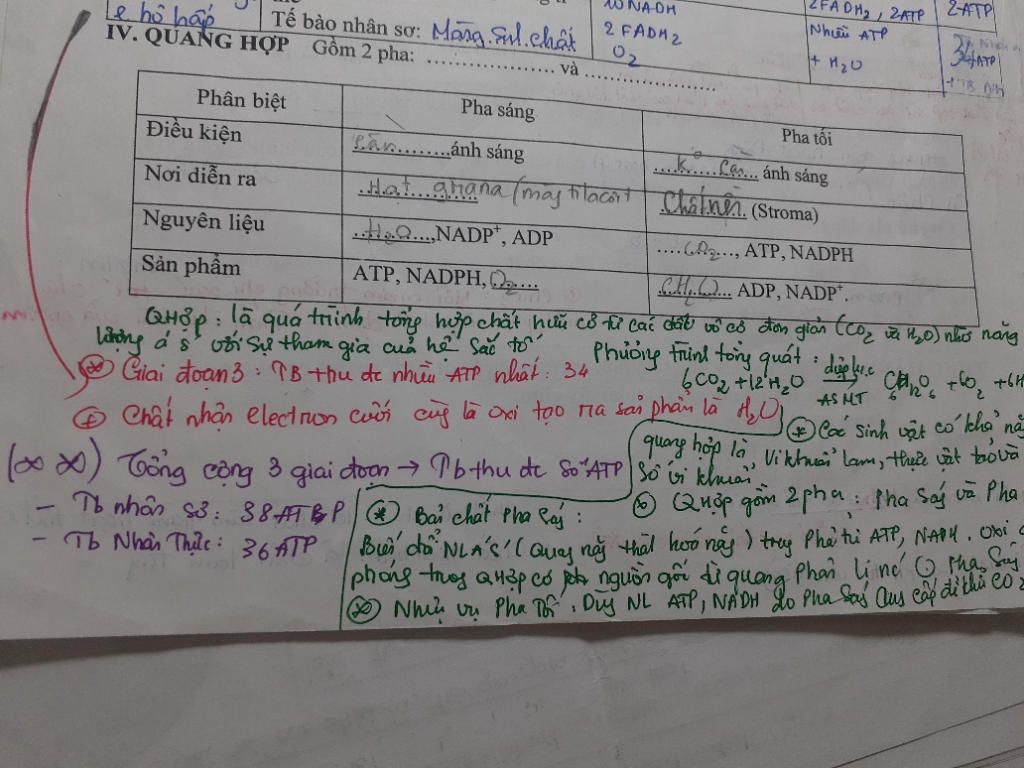 e hô hấp
Tế bào nhân sơ: Màng sinh chất
10 NADH
2 FADH2
O2
2 FADH2, 2ATP
Nhiều ATP
+ H2O
2 ATP
34 ATP
IV. QUANG HỢP Gồm 2 pha: .................... và ......................
Phân biệt | Pha sáng | Pha tối
Điều kiện | cần ........ánh sáng | ...k... cần... ánh sáng
Nơi diễn ra | Hạt grana (màng tilacoit | Chất nền (Stroma)
Nguyên liệu | ..H2O..,NADP+, ADP | ....CO2..., ATP, NADPH
Sản phẩm | ATP, NADPH, O2.... | CH2O... ADP, NADP+.
QHợp: là quá trình tổng hợp chất hữu cơ từ các chất vô cơ đơn giản (CO2 và H2O) nhờ năng
lượng á's' với sự tham gia của hệ sắc tố
Phương trình tổng quát: diệp lục
6CO2 + 12H2O → C6H12O6 + 6O2 + 6H
ASMT
Giai đoạn 3: TB thu đc nhiều ATP nhất: 34
Chất nhận electron cuối cùng là oxi tạo ra sản phẩm là H2O
Các sinh vật có khả nă
quang hợp là Vi khuẩn lam, thực vật tảo và
số vi khuẩn
(∞ ∞) Tổng cộng 3 giai đoạn → Tb thu đc số ATP
- Tb nhân sơ: 38 ATP
- Tb Nhân Thực: 36 ATP
QHợp gồm 2 pha: Pha Ság và Pha
Bản chất Pha Ság:
Biến đổi NLÁ'S' (Quag năg thàh hoá năg) trog Phân tử ATP, NAPH. Oxi
phóng trog QHợp có nguồn gốc từ quang Phân li nc Pha Ság
Nhiệm vụ Pha Tối: Dùg NL ATP, NADH do Pha Ság cug cấp để khử CO2